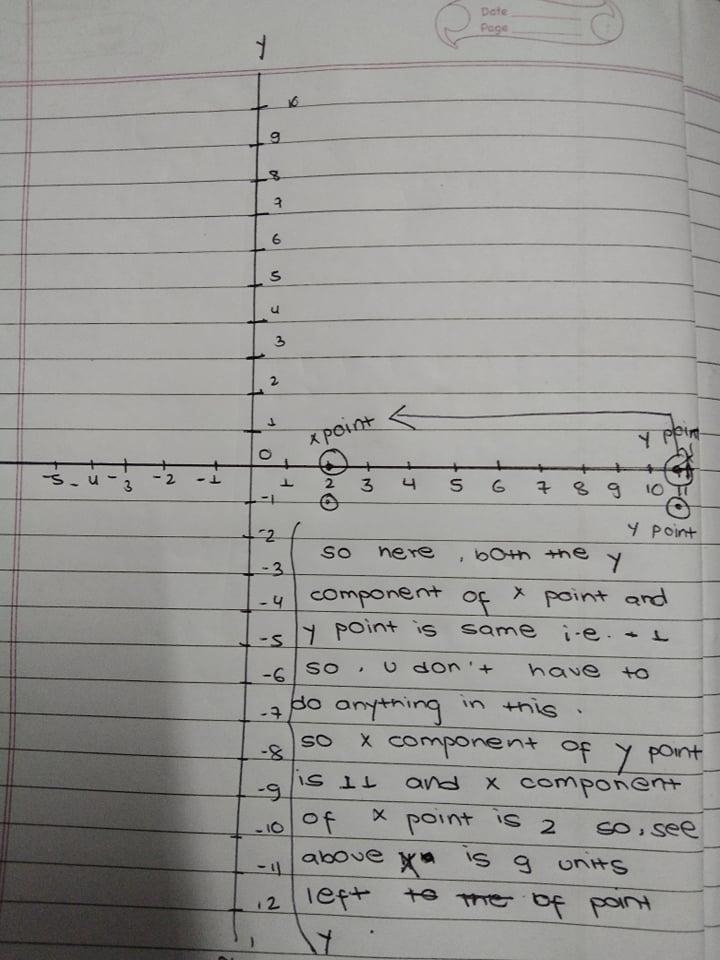 Date
Page
y
10
9
8
7
6
5
4
3
2
1
x point
y point
0
-5 -4 -3 -2 -1 1 2 3 4 5 6 7 8 9 10 11
-1
y point
-2
so here, both the y
-3
component of x point and
-4
y point is same i.e. -1
-5
so, u don't have to
-6
do anything in this.
-7
so x component of y point
-8
is 11 and x component
-9
of x point is 2 so, see
-10
above x is 9 units
-11
left to the of point
12
y.